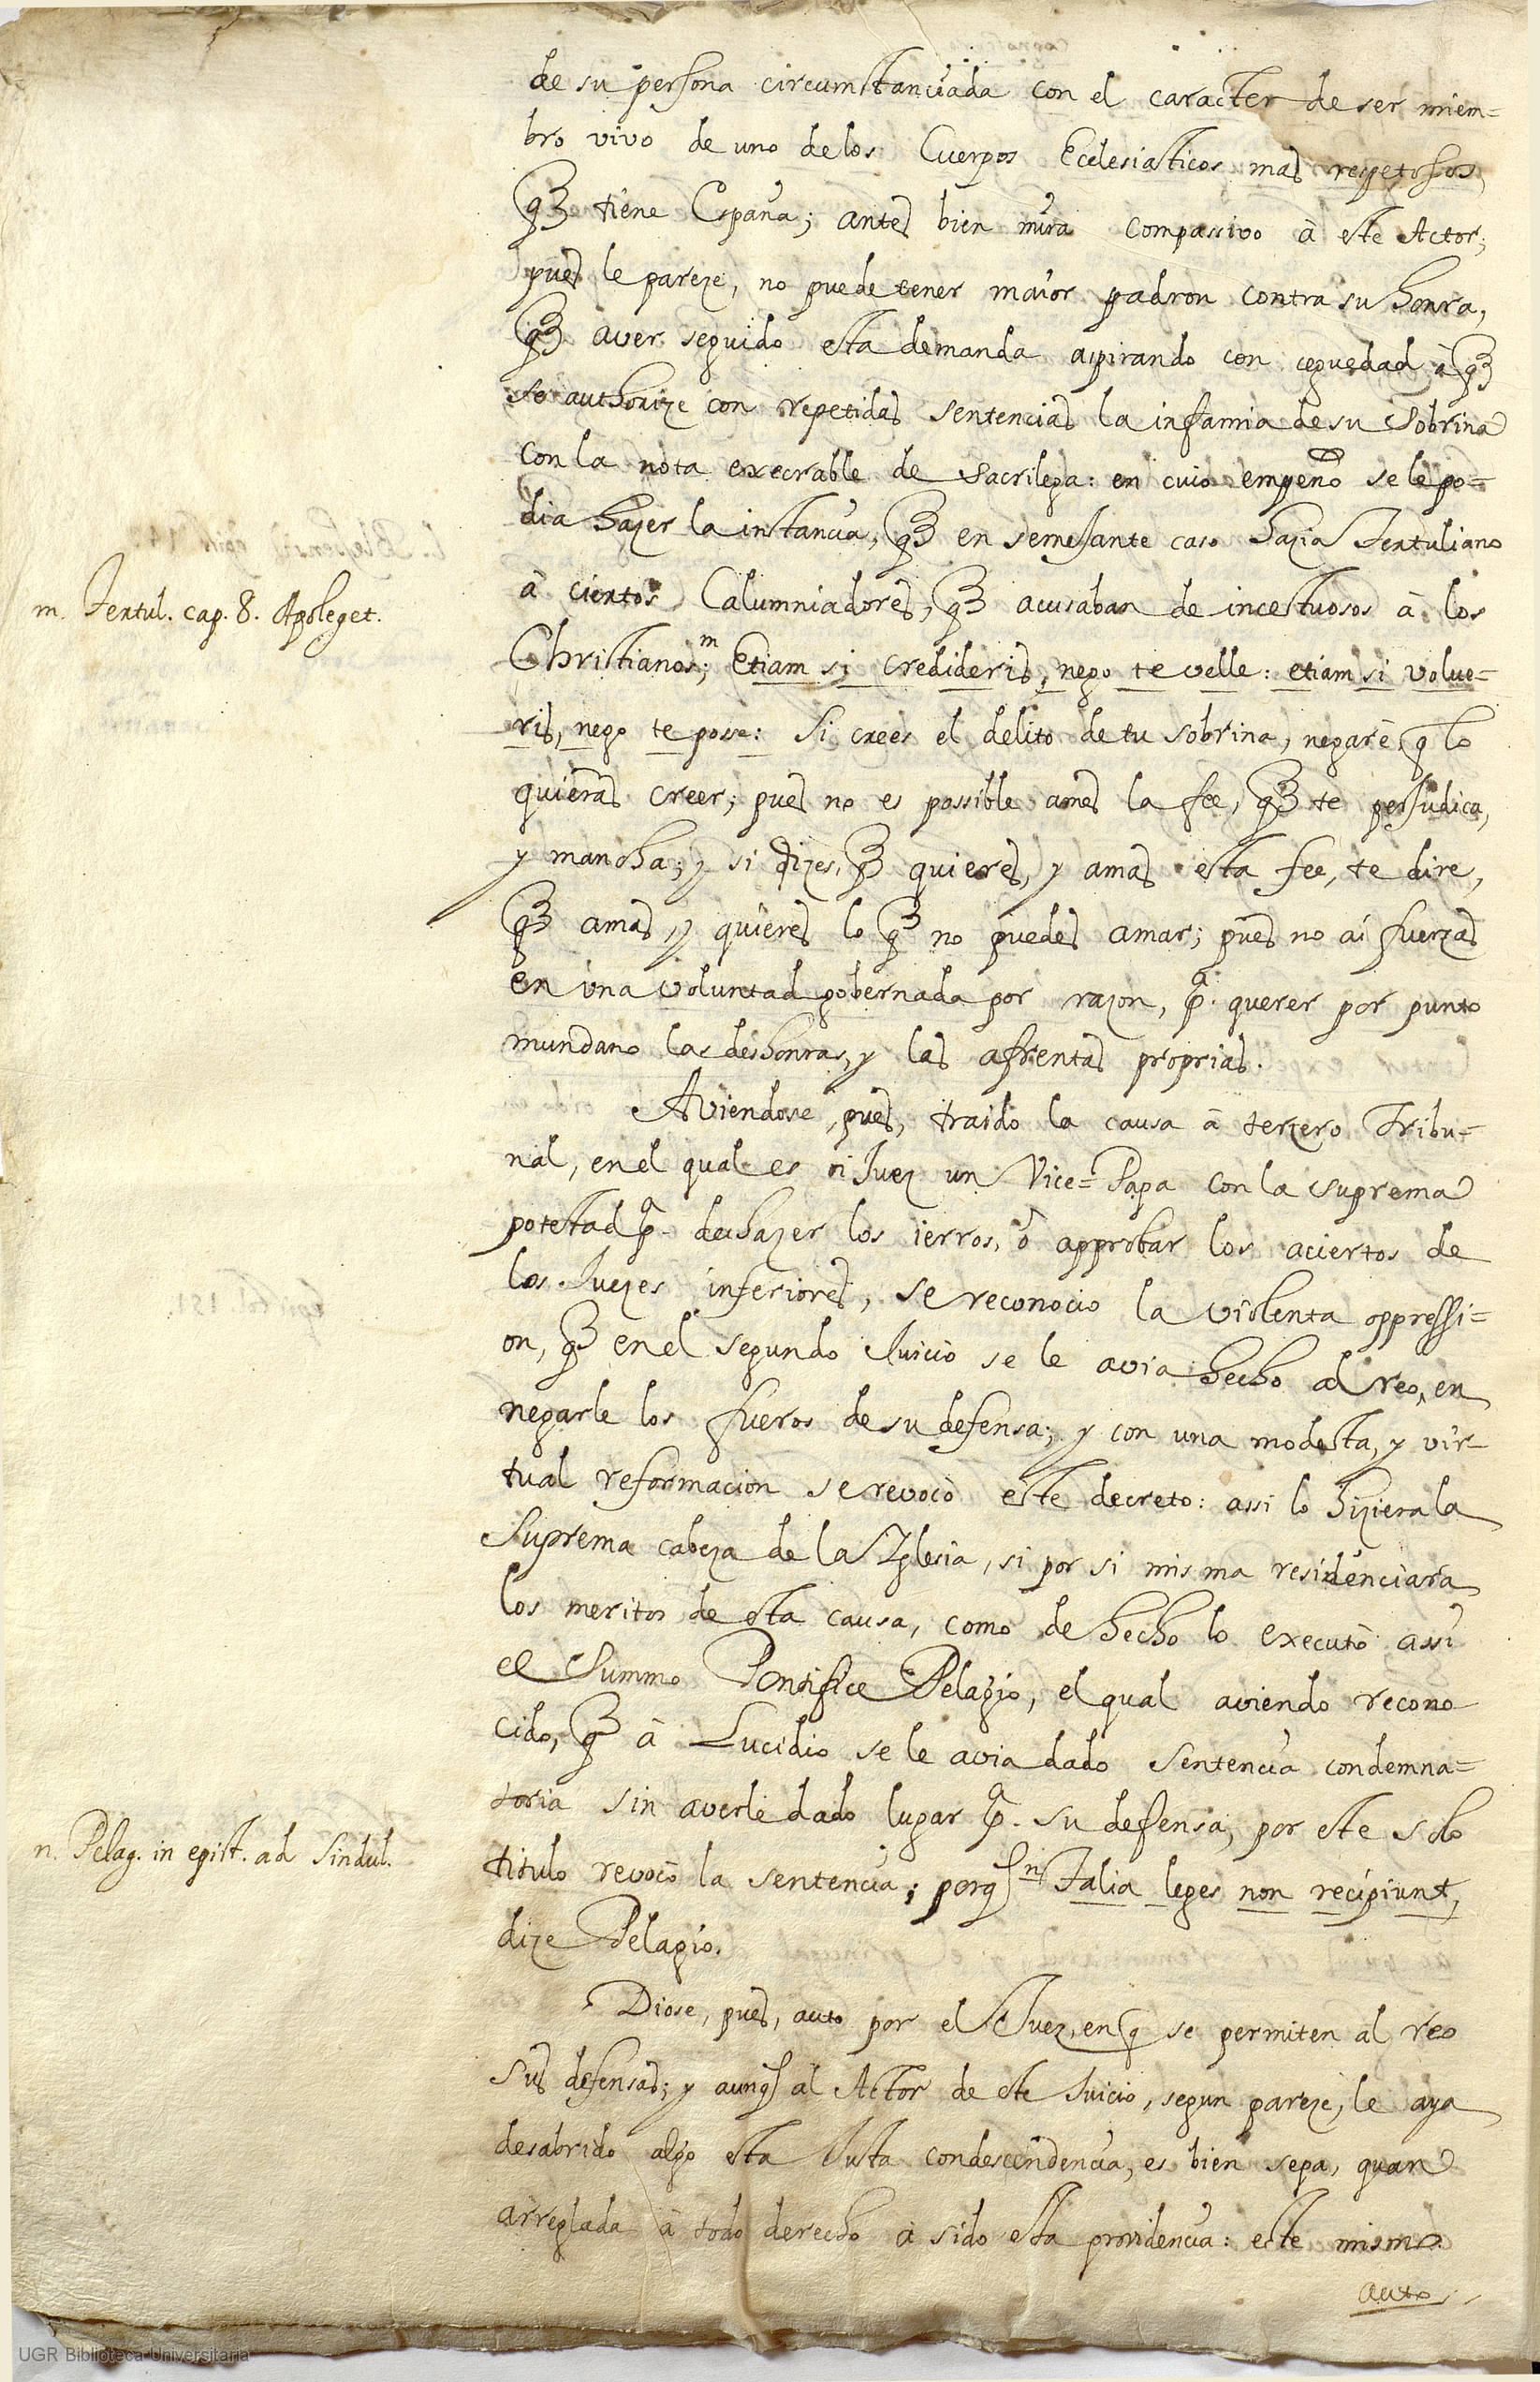 de su persona circumstanciada con el caracter de ser miem=
bro vivo de uno de los Cuerpos Ecclesiasticos mas respetosos,
q̃ tiene España; antes bien mira compassivo à este Actor;
pues le pareze, no puede tener maior padron contra su honra,
q̃ aver seguido esta demanda aspirando con ceguedad à q̃
se authorize con repetidas sentencias la infamia de su Sobrina
con la nota execrable de Sacrilega: en cuio empeño se le po=
dia hazer la instancia, q̃ en semejante caso hazia Tertuliano
à ciertos Calumniadores, q̃ acusaban de incestuosos à los
m. Tertul. cap. 8. Apologet.
Christianos;ᵐ Etiam si credideris, nego te velle: etiam si volue=
ris, nego te posse: Si crees el delito de tu sobrina, negarè, q̃ lo
quieras creer; pues no es possible ames la fee, q̃ te perjudica,
y mancha; y si dizes, q̃ quieres, y amas esta fee, te dire,
q̃ amas, y quieres lo q̃ no puedes amar; pues no ai fuerzas
en una voluntad gobernada por razon, pª. querer por punto
mundano las deshonras, y las afrentas proprias.
Aviendose, pues, traido la causa à terzero Tribu=
nal, en el qual es el Juez un Vice=Papa con la suprema
potestad pª. deshazer los ierros, ò approbar los aciertos de
los Juezes inferiores, se reconocio la violenta oppressi=
on, q̃ en el segundo Juicio se le avia hecho al reo, en
negarle los fueros de su defensa; y con una modesta, y vir-
tual reformacion se revocò este decreto: assi lo hiziera la
Suprema cabeza de la Yglesia, si por si misma residenciara
los meritos de esta causa, como de hecho lo executò assi
el Summo Pontifice Pelagio, el qual aviendo recono
cido, q̃ à Lucidio se le avia dado sentencia condemna=
toria sin averle dado lugar pª. su defensa, por este solo
n. Pelag. in epist. ad Sindul.
titulo revocò la sentencia; porq̃ ⁿ Talia leges non recipiunt,
dize Pelagio.
Diose, pues, auto por el Juez, en q̃ se permiten al reo
sus defensas; y aunq̃ al Actor de este Juicio, segun pareze, le aya
desabrido algo esta Justa condescendencia, es bien sepa, quan
arreglada à todo derecho à sido esta providencia: este mismo
auto
UGR Biblioteca Universitaria